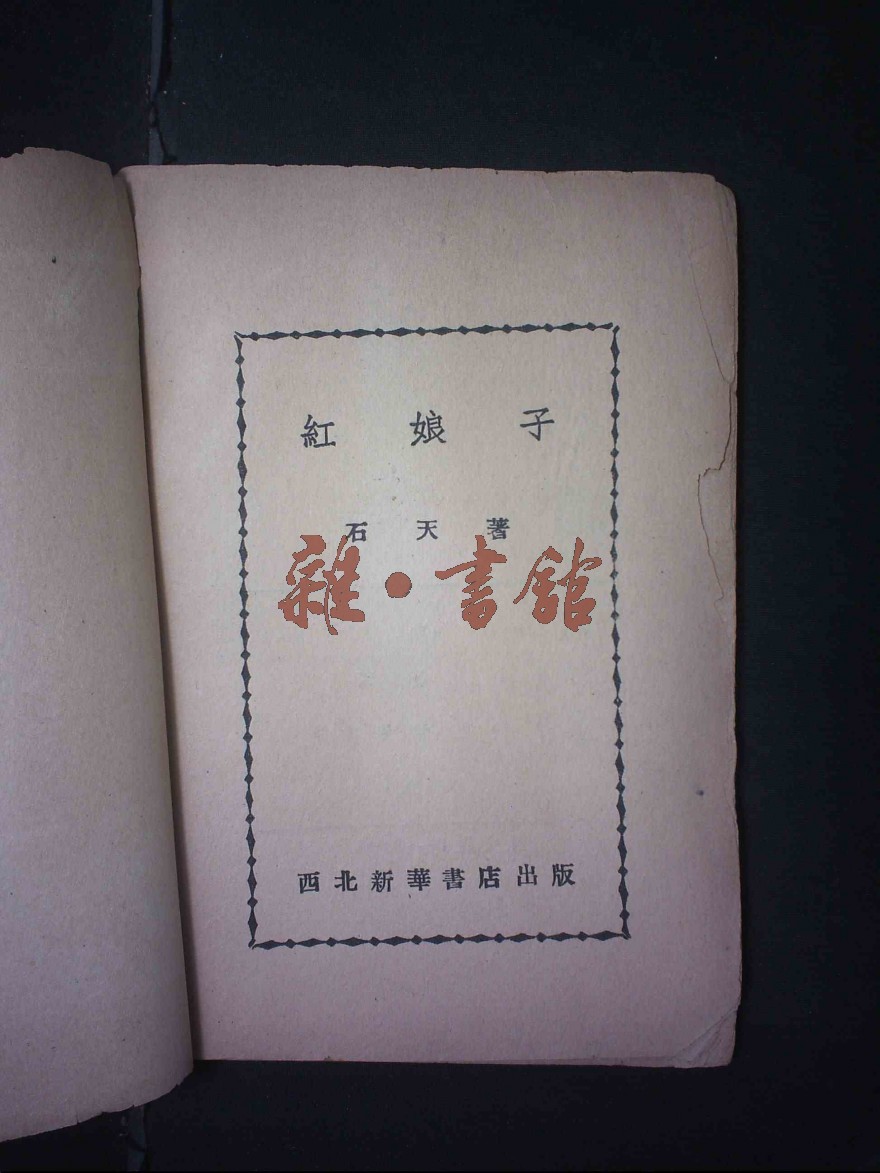 紅娘子
石天著
雜·書館
西北新華書店出版